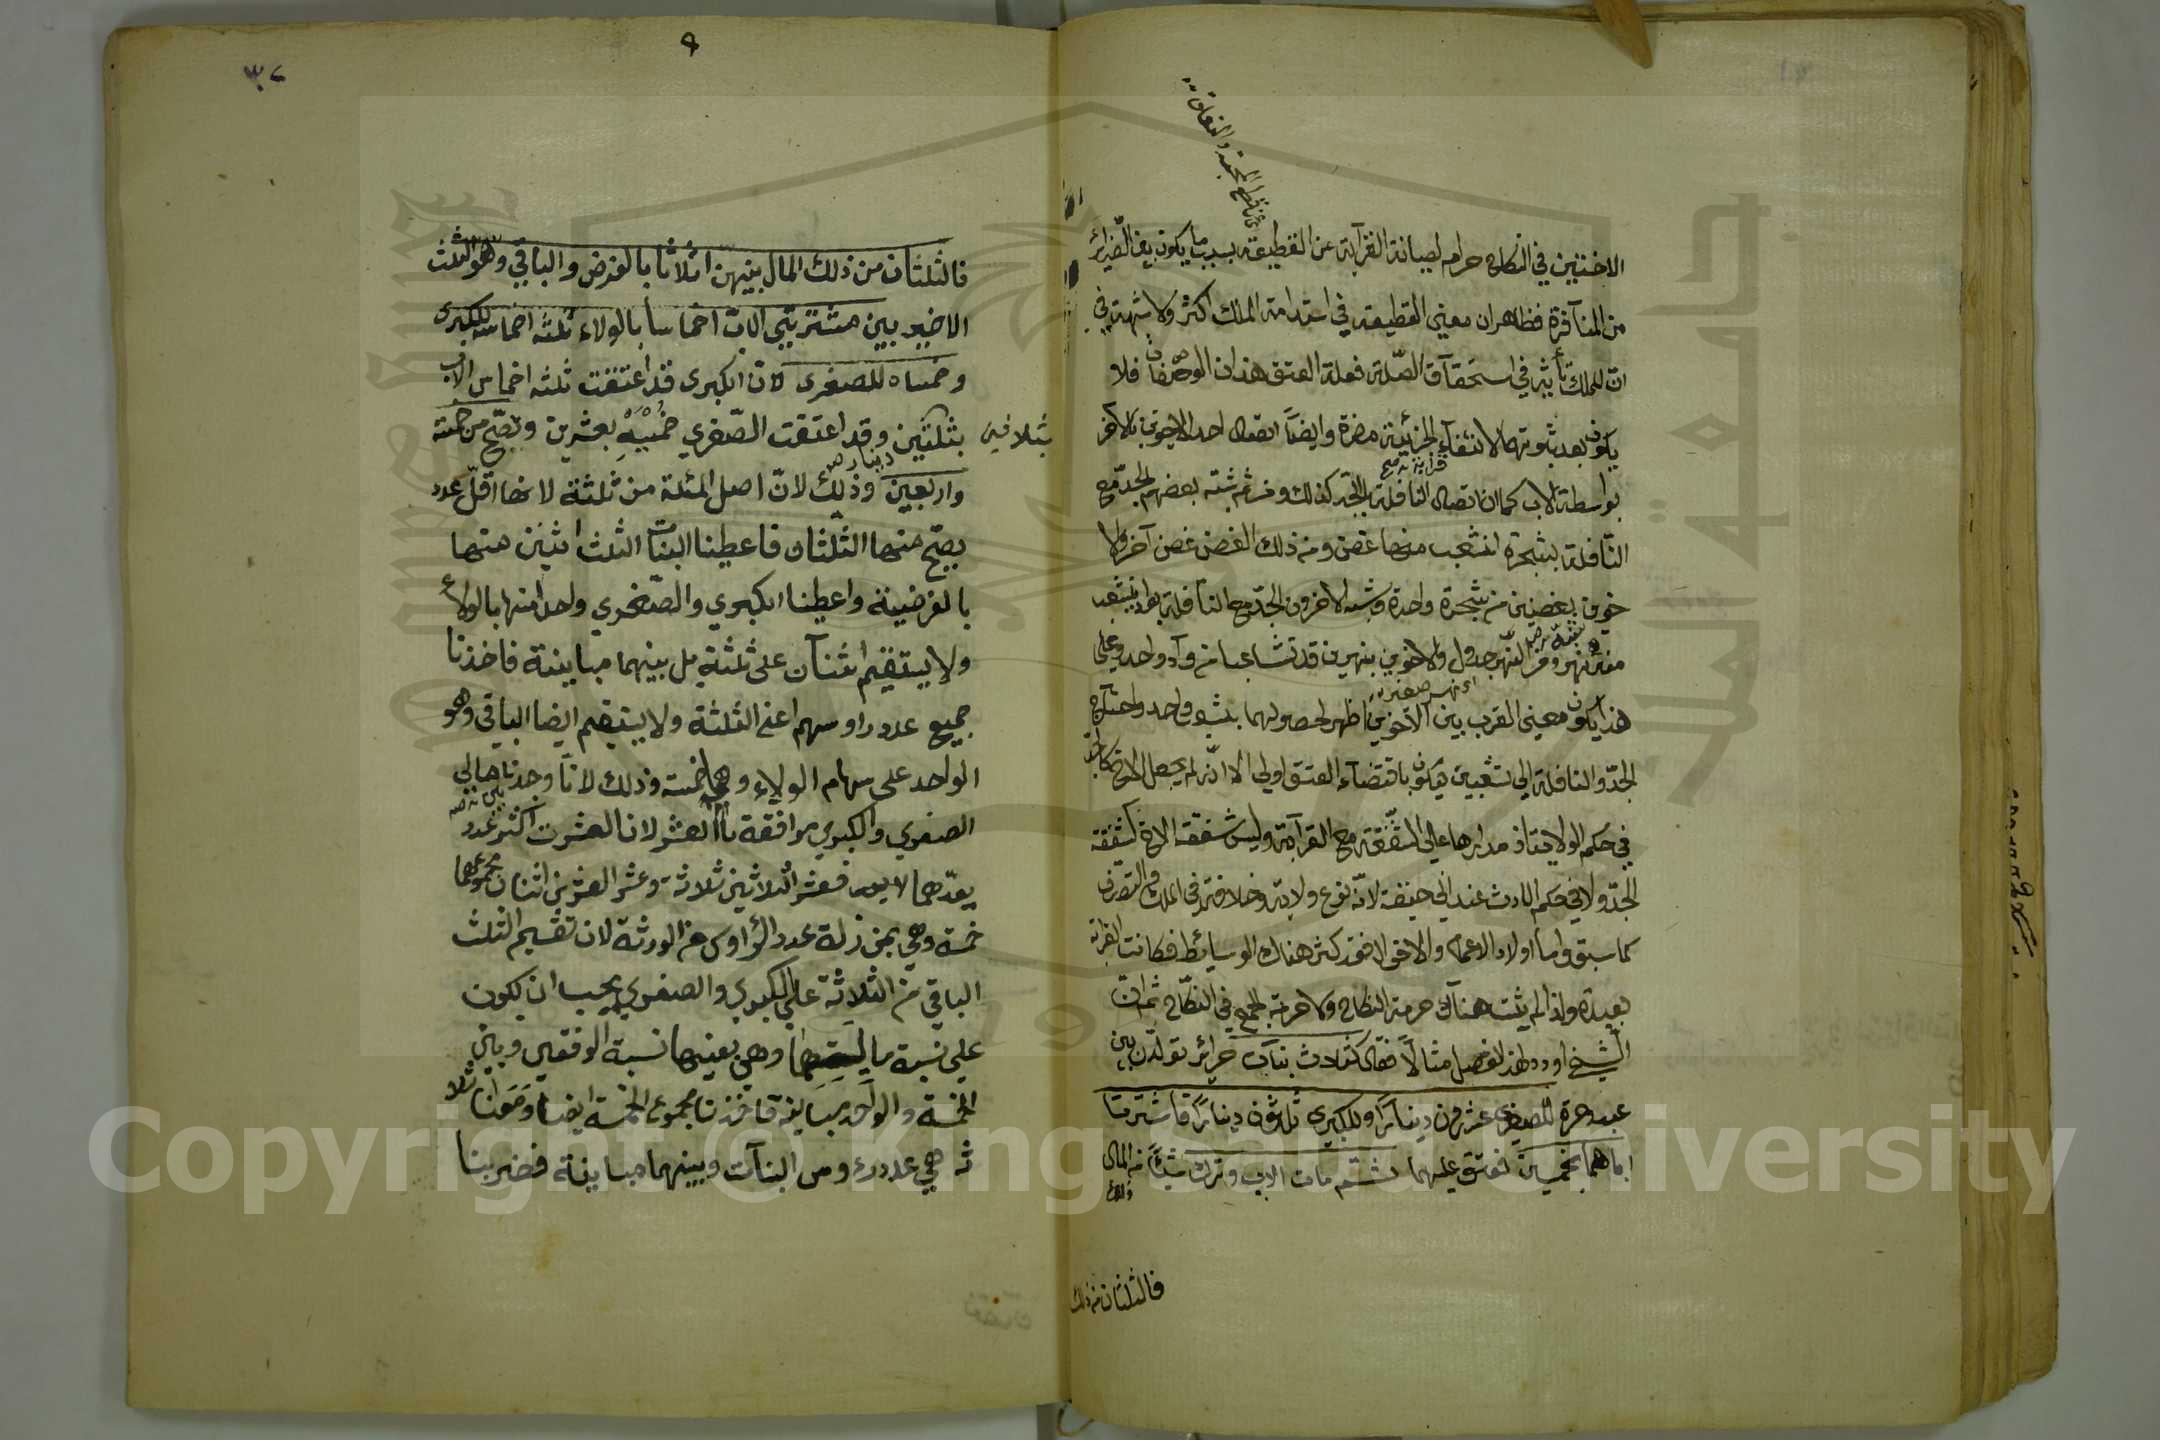 الاختين في النكاح حرام لصيانة القرآبة عن القطيعة بسبب ما يكون بين الضرائر
من المنآفرة فظاهر ان معنى القطيعة في استدامة الملك اكثر ولا شبهة في
ان للملك تأثير في استحقآق الصّلة فعلة العتق هذان الوصفان فلا
يكون بعد ثبوتهما لانتفآء الجزئية مضرة وايضًا اتصال احد الاخوين بالآخر
بواسطة الاب كما ان اتصال النافلة بالجّد كذلك ومن ثم شبّه بعضهم الجدّ مع
النّافلة بشجرة انشعب منها غصن ومن ذلك الغصن غصن آخر والا
خوين بغصنين من شجرة واحدة وشبه الآخرون الجدّ مع النآفلة بواد ينشعب
منه نهر ومن النهر جدول والاخوين بنهرين قد تشاعبا من وآد واحد وعلى
هذا يكون معنى القرب بين الآخوين اظهر لحصولهما بشعب واحد واحتياج
الجدّ والنافلة الى شعبين فيكون باقتضآء العتق اولى الا انه لم يجعل الاخ كالجد
في حكم الولاية اذ مدارها على الشّفقة مع القرآبة وليس شفقة الاخ كشفقة
الجدّ ولا في حكم الارث عند ابي حنيفة لانّه نوع ولاية وخلافة في الملك والتصرف
كما سبق واما اولاد الاعمام والاخوال فقد كثر هناك الوسائط فكانت القرابة
بعيدة ولذا لم يثبت هنآك حرمة النكاح ولا حرمة الجمع في النكاح ثم انّ
الشيخ اورد لهذا الفصل مثالًا فقال كثلاث بنآت حرائر تولدن بين
عبد وحرة للصغرى عشرون دينارًا وللكبرى ثلثون دينارًا فاشترتا
اباهما بخمسين فعتق عليهما ثم مات الاب وترك شيئًا من المال
فالثلثان من ذلك
٣٢
فالثلثان من ذلك المال بينهنّ اثلاثًا بالفرض والباقي وهو الثلث
الاخير بين مشتريتي الاب اخماسا بالولاء ثلثة اخماسه للكبرى
وخمساه للصغرى لان الكبرى قد اعتقت ثلثة اخماس الاب
بثلثين وقد اعتقت الصّغرى خمسيه بعشرين وتصّح من خمسة
بثلاثين
واربعين وذلك لانّ اصل المسئلة من ثلثة لانها اقلّ عدد
يصحّ منها الثلثان فاعطينا البنات الثلث اثنين منها
بالفرضية واعطينا الكبرى والصّغرى واحدا منها بالولاء
ولا يستقيم اثنآن على ثلثة بل بينهما مباينة فاخذنا
جميع عدد رؤسهم اعنى الثلثة ولا يستقيم ايضا الباقي وهو
الواحد على سهام الولاء وهي خمسة وذلك لانّا وجدنا مالي
الصغرى والكبرى موافقة بالعشر لان العشرة اكثر عدد
يعدّهما فعشر الثلاثين ثلاثة وعشر العشرين اثنان مجموعهما
خمسة وهي بمنزلة عدد الرؤوس من الورثة لان تقسيم الثلث
الباقي من الثلاثة على الكبرى والصغرى يجب ان يكون
على نسبة ماليهما وهي بعينها نسبة الوفقين وبين
الخمسة والواحد مباينة فاخذنا مجموع الخمسة ايضًا وضعنا ثلا
ثة هي عدد رؤس البنآت وبينهما مباينة فضربنا
Copyright © King Saud University